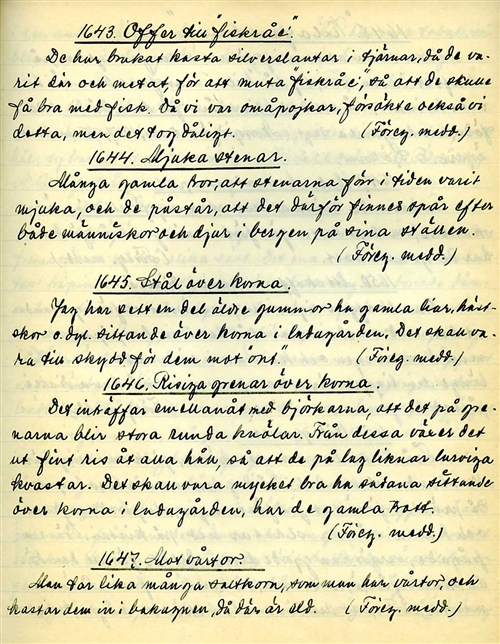 1643. Offer till "fiskrået".
De har brukat kasta silverslantar i tjärnar, då de va-
rit där och metat, för att muta "fiskrået", så att de skulle
få bra med fisk. Då vi var småpojkar, försökte också vi
detta, men det tog dåligt. (Föreg. medd.)
1644. Mjuka stenar.
Många gamla tror, att stenarna förr i tiden varit
mjuka, och de påstår, att det därför finnes spår efter
både människor och djur i bergen på sina ställen.
(Föreg. medd.)
1645. Stål över korna.
Jag har sett en del äldre gummor ha gamla liar, häst-
skor o. dyl. sittande över korna i ladugården. Det skall va-
ra till skydd för dem mot "ont". (Föreg. medd.)
1646. Risiga grenar över korna.
Det inträffar emellanåt med björkarna, att det på gre-
narna blir stora runda knölar. Från dessa växer det
ut fint ris åt alla håll, så att de på lag liknar lurviga
kvastar. Det skall vara mycket bra ha sådana sittande
över korna i ladugården, har de gamla trott.
(Föreg. medd.)
1647. Mot vårtor.
Man tar lika många saltkorn, som man har vårtor, och
kastar dem in i bakugnen, då där är eld. (Föreg. medd.)